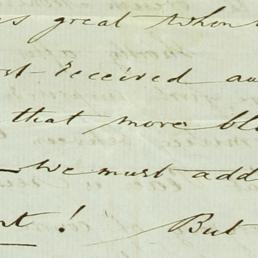 s great when
st received au
that more blo
— we must add
nt! But